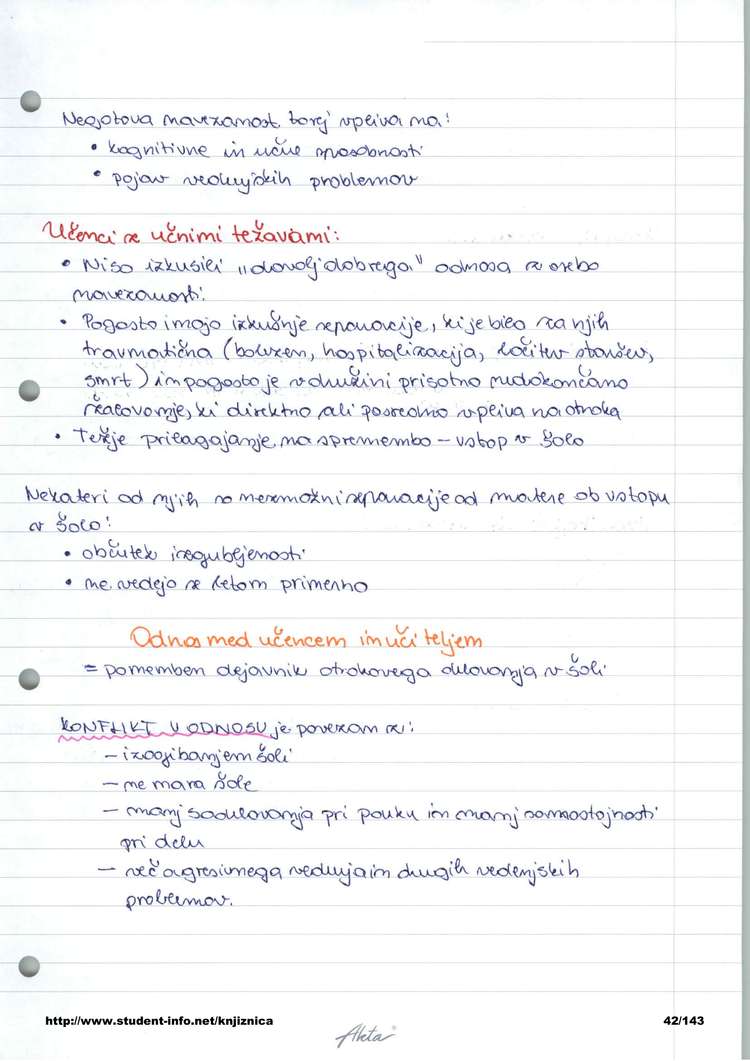 Negotova navezanost torej vpliva na:
• kognitivne in učne sposobnosti
• pojav vedenjskih problemov
Učenci z učnimi težavami:
• Niso izkusili "dovolj dobrega" odnosa z osebo
navezanosti.
• Pogosto imajo izkušnje separacije, ki je bila za njih
travmatična (bolezen, hospitalizacija, ločitev staršev,
smrt) in pogosto je v družini prisotno nedokončano
žalovanje, ki direktno ali posredno vpliva na otroka
• Težje prilagajanje na spremembo – vstop v šolo
Nekateri od njih so nezmožni separacije od matere ob vstopu
v šolo:
• občutek izgubljenosti
• ne vedejo se letom primerno
Odnos med učencem in učiteljem
= pomemben dejavnik otrokovega delovanja v šoli
KONFLIKT V ODNOSU je povezan z:
– izogibanjem šoli
– ne mara šole
– manj sodelovanja pri pouku in manj samostojnosti
pri delu
– več agresivnega vedenja in drugih vedenjskih
problemov.
http://www.student-info.net/knjiznica 42/143
Akta